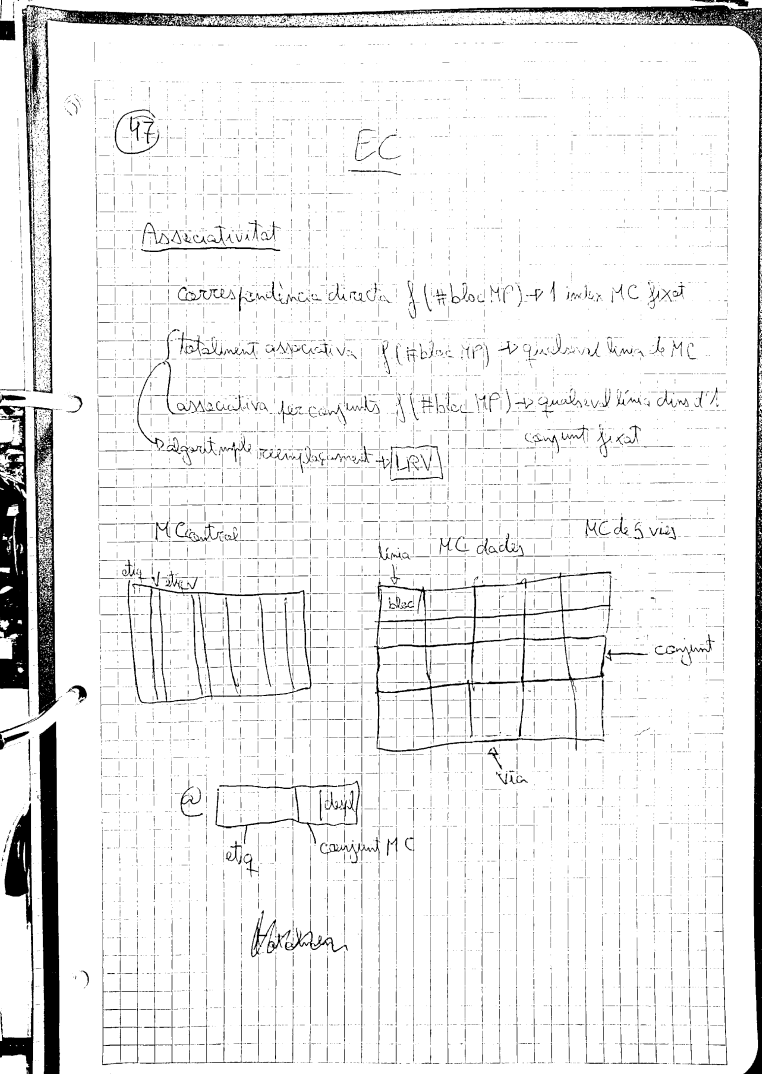 47
EC
Associativitat
correspondència directa f(#bloc MP) → 1 index MC fixat
totalment associativa f(#bloc MP) → qualsevol línia de MC
associativa per conjunts f(#bloc MP) → qualsevol línia dins d'1
conjunt fixat
→ algoritme reemplaçament →
MC control
MC dades
MC de 5 vies
línia
etiq V etiq V
bloc
conjunt
via
@
despl
etiq
conjunt MC